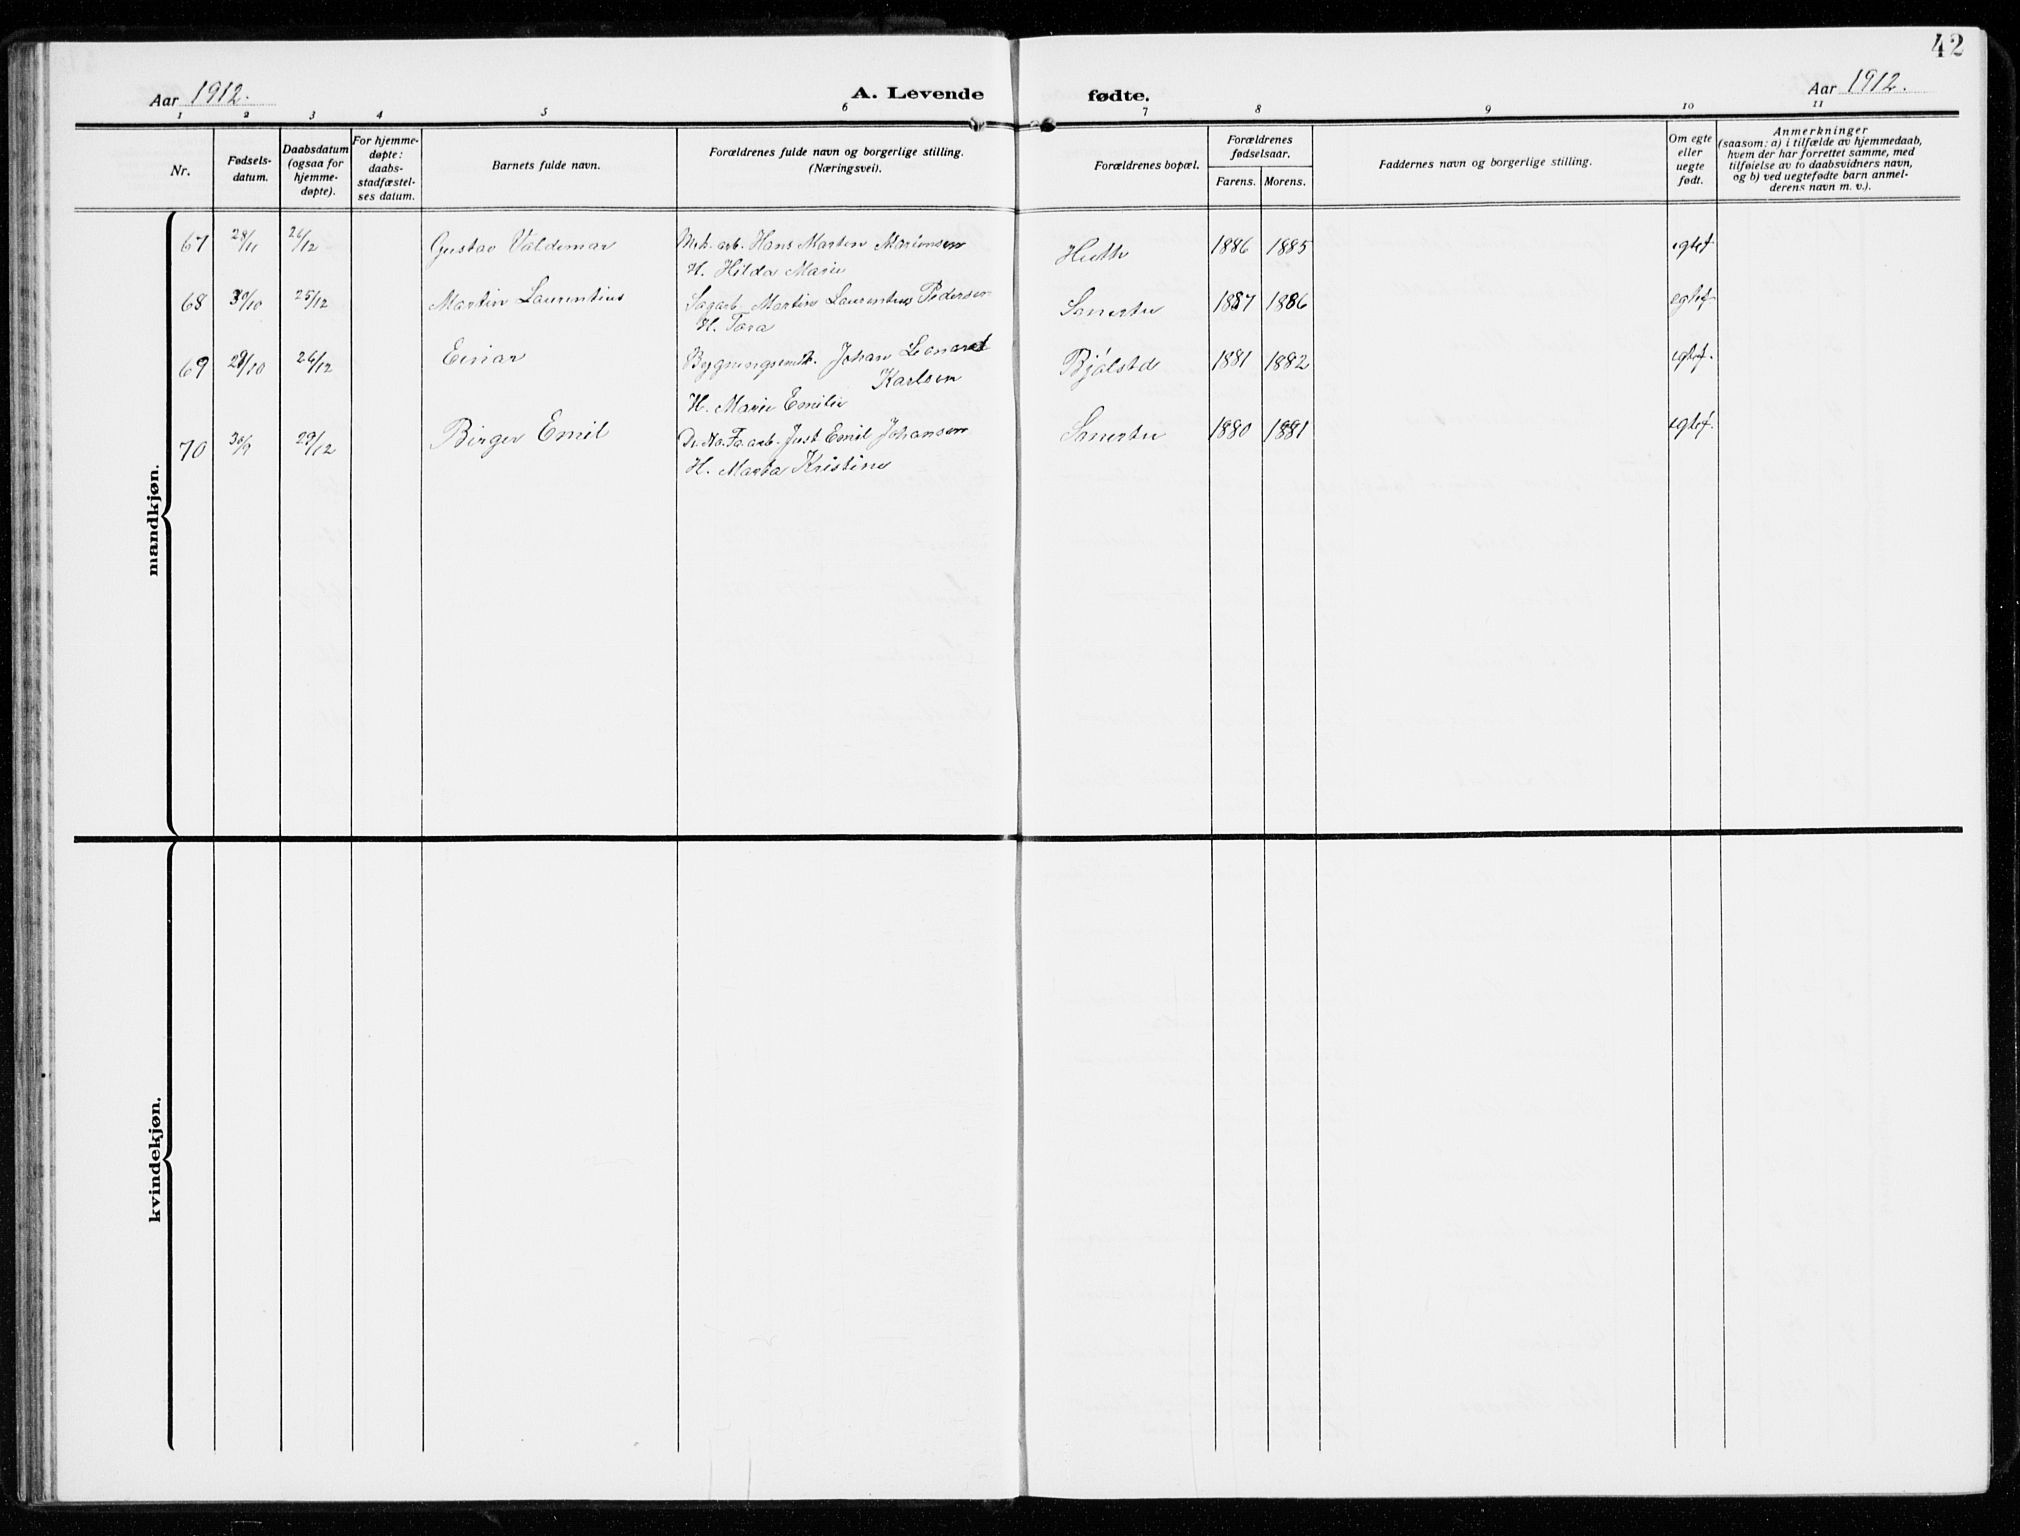 42
Aar 1912.
A. Levende fødte.
Aar 1912.
1 2 3 4 5 6 7 8 9 10 11
Nr.
Fødsels-
datum.
Daabsdatum
(ogsaa for
hjemme-
døpte).
For hjemme-
døpte:
daabs-
stadfæstel-
ses datum.
Barnets fulde navn.
Forældrenes fulde navn og borgerlige stilling.
(Næringsvei).
Forældrenes bopæl.
Forældrenes
fødselsaar.
Farens. Morens.
Faddernes navn og borgerlige stilling.
Om egte
eller
uegte
født.
Anmerkninger
(saasom: a) i tilfælde av hjemmedaab,
hvem der har forrettet samme, med
tilføielse av to daabsvidners navn,
og b) ved uegtefødte barn anmel-
derens navn m. v.).
mandkjøn.
67 28/11 26/12 Gustav Valdemar Mek. arb. Hans Martin Marionsen 1886 1885 egtef
H. Hilda Marie
68 30/10 25/12 Martin Laurentius Sagarb. Martin Laurentius Pedersen 1887 1886 egtef
H. Tora
69 29/10 26/12 Einar Bygningssmk. Johan Leonard Bjølstad 1881 1882 egtef.
Karlsen
H. Marie Emilie
70 30/9 29/12 Birger Emil Just Emil Johansen 1880 1881 egtef.
H. Marta Kristine
kvindekjøn.